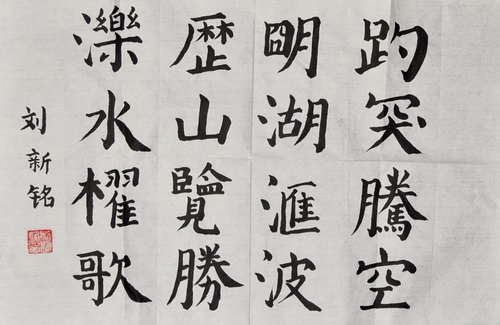 趵突騰空
明湖滙波
歷山覽勝
濼水櫂歌
刘新铭